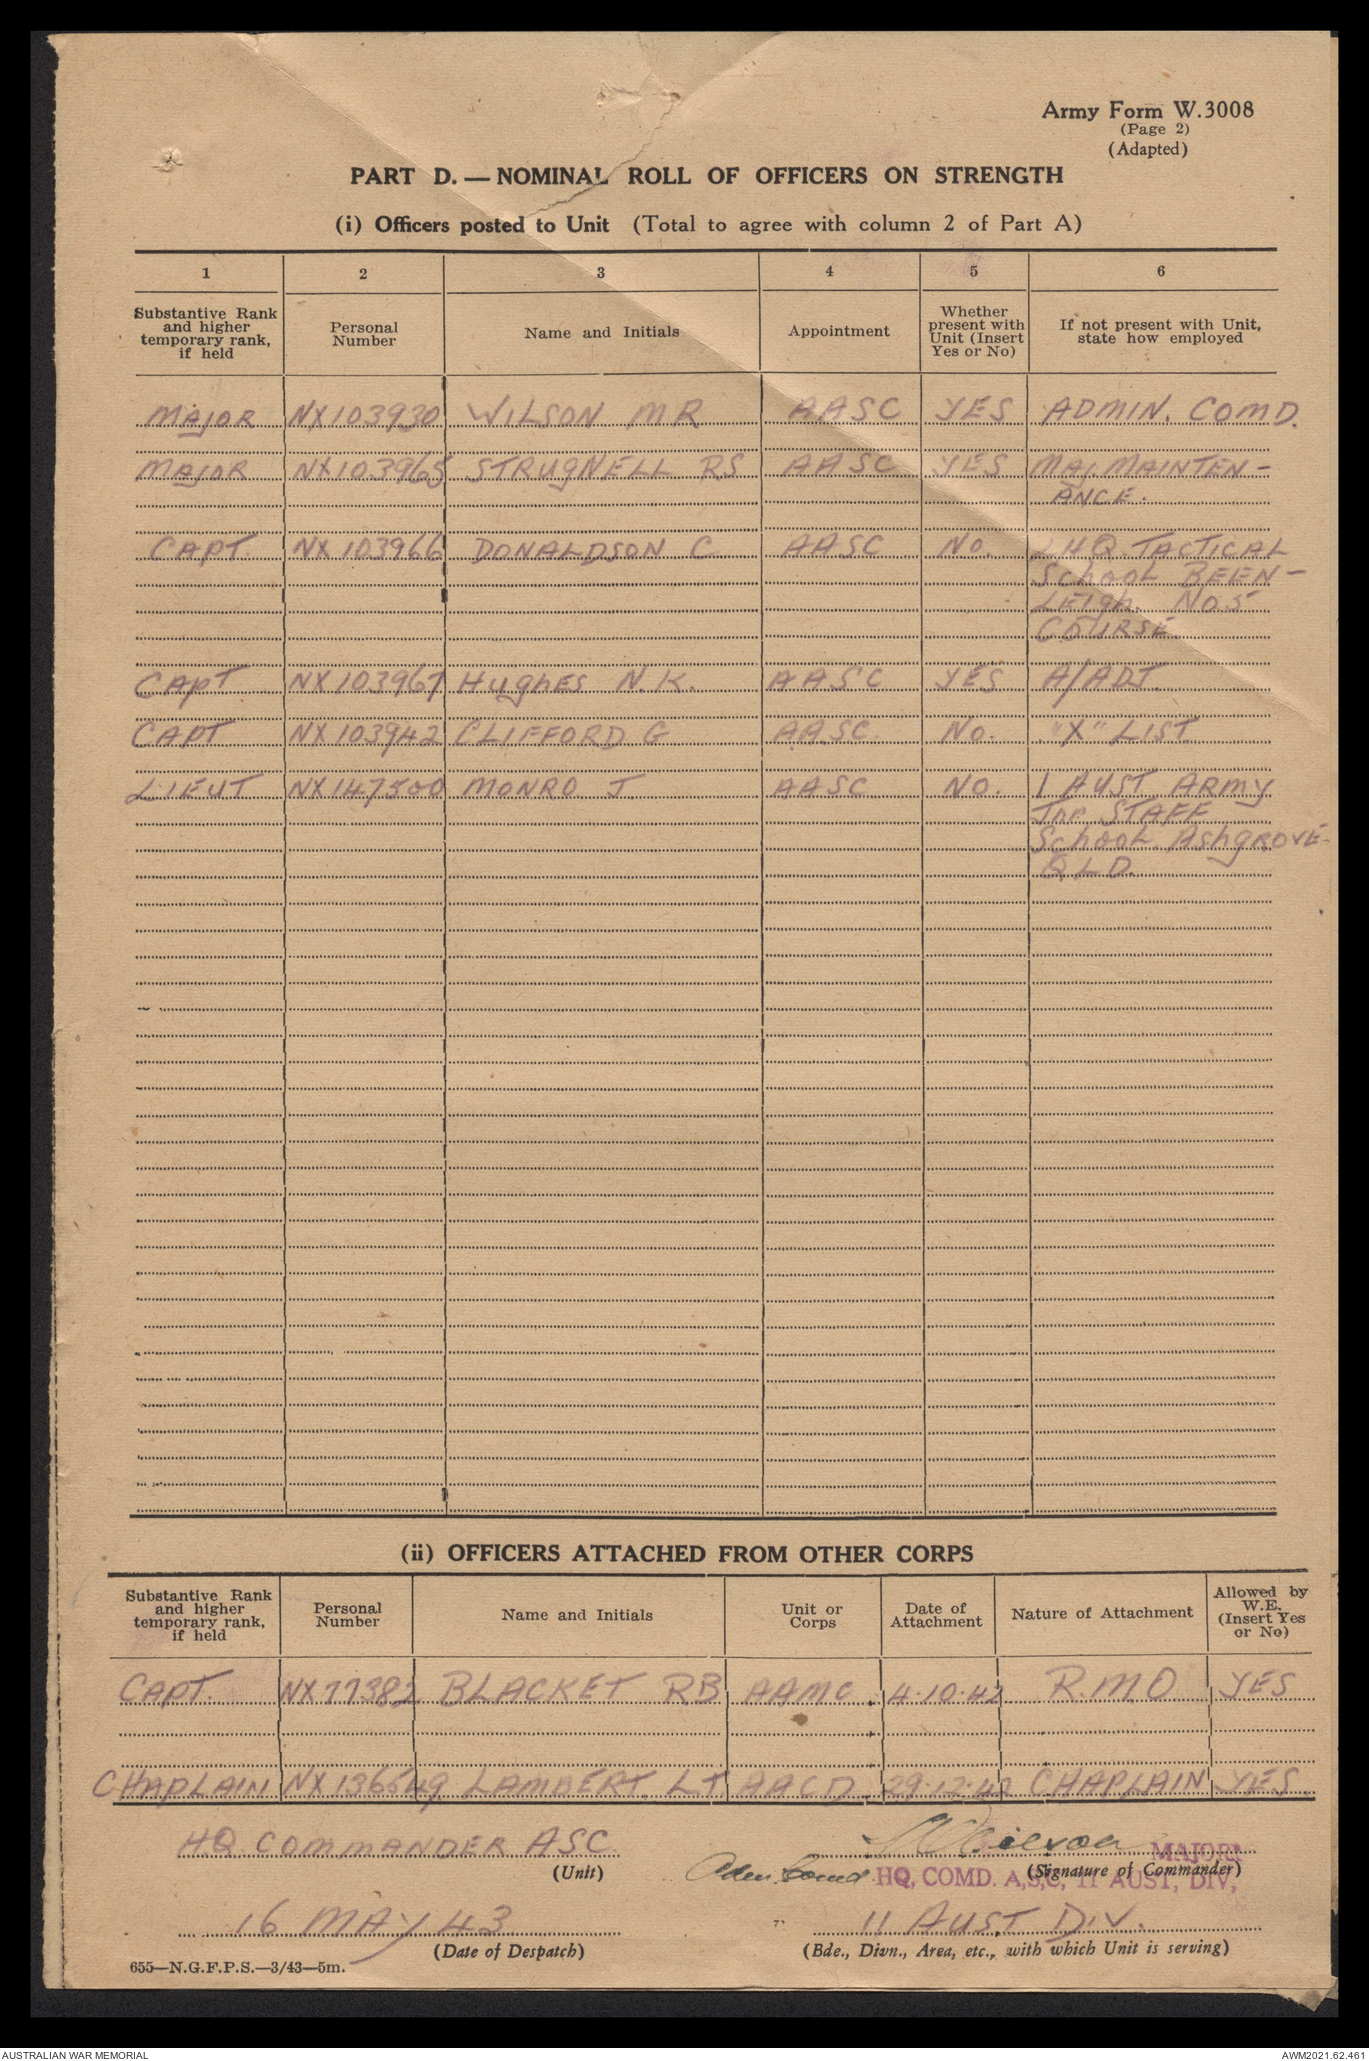 Army Form W.3008
(Page 2)
(Adapted)
PART D.—NOMINAL ROLL OF OFFICERS ON STRENGTH
(i) Officers posted to Unit (Total to agree with column 2 of Part A)
1 2 3 4 5 6
Substantive Rank and higher temporary rank, if held
Personal Number
Name and Initials
Appointment
Whether present with Unit (Insert Yes or No)
If not present with Unit, state how employed
MAJOR NX103930 WILSON MR AASC YES ADMIN. COMD.
MAJOR NX103965 STRUGNELL RS AASC YES MAJ. MAINTEN-
ANCE.
CAPT. NX103966 DONALDSON C AASC NO. LHQ TACTICAL
School BEEN-
LEIGH. NO5
COURSE
CAPT NX103967 HUGHES N.K. AASC YES A/ADT.
CAPT NX103942 CLIFFORD G AASC. NO. "X" LIST
LIEUT NX147500 MONRO J AASC NO. 1 AUST ARMY
Jnr STAFF
School. AshGROVE
QLD.
(ii) OFFICERS ATTACHED FROM OTHER CORPS
Substantive Rank and higher temporary rank, if held
Personal Number
Name and Initials
Unit or Corps
Date of Attachment
Nature of Attachment
Allowed by W.E. (Insert Yes or No)
CAPT. NX77382 BLACKET RB AAMC. 4.10.42 R.M.O YES
CHAPLAIN NX136549 LAMBERT. LT AACD. 29.12.42 CHAPLAIN YES.
HQ COMMANDER ASC.
(Unit)
Wilson MAJOR
(Signature of Commander)
Comd HQ, COMD. A,S,C, 11 AUST, DIV,
16 MAY 43
(Date of Despatch)
11 AUST. DIV.
(Bde., Divn., Area, etc., with which Unit is serving)
655—N.G.F.P.S.—3/43—5m.
AUSTRALIAN WAR MEMORIAL
AWM2021.62.461